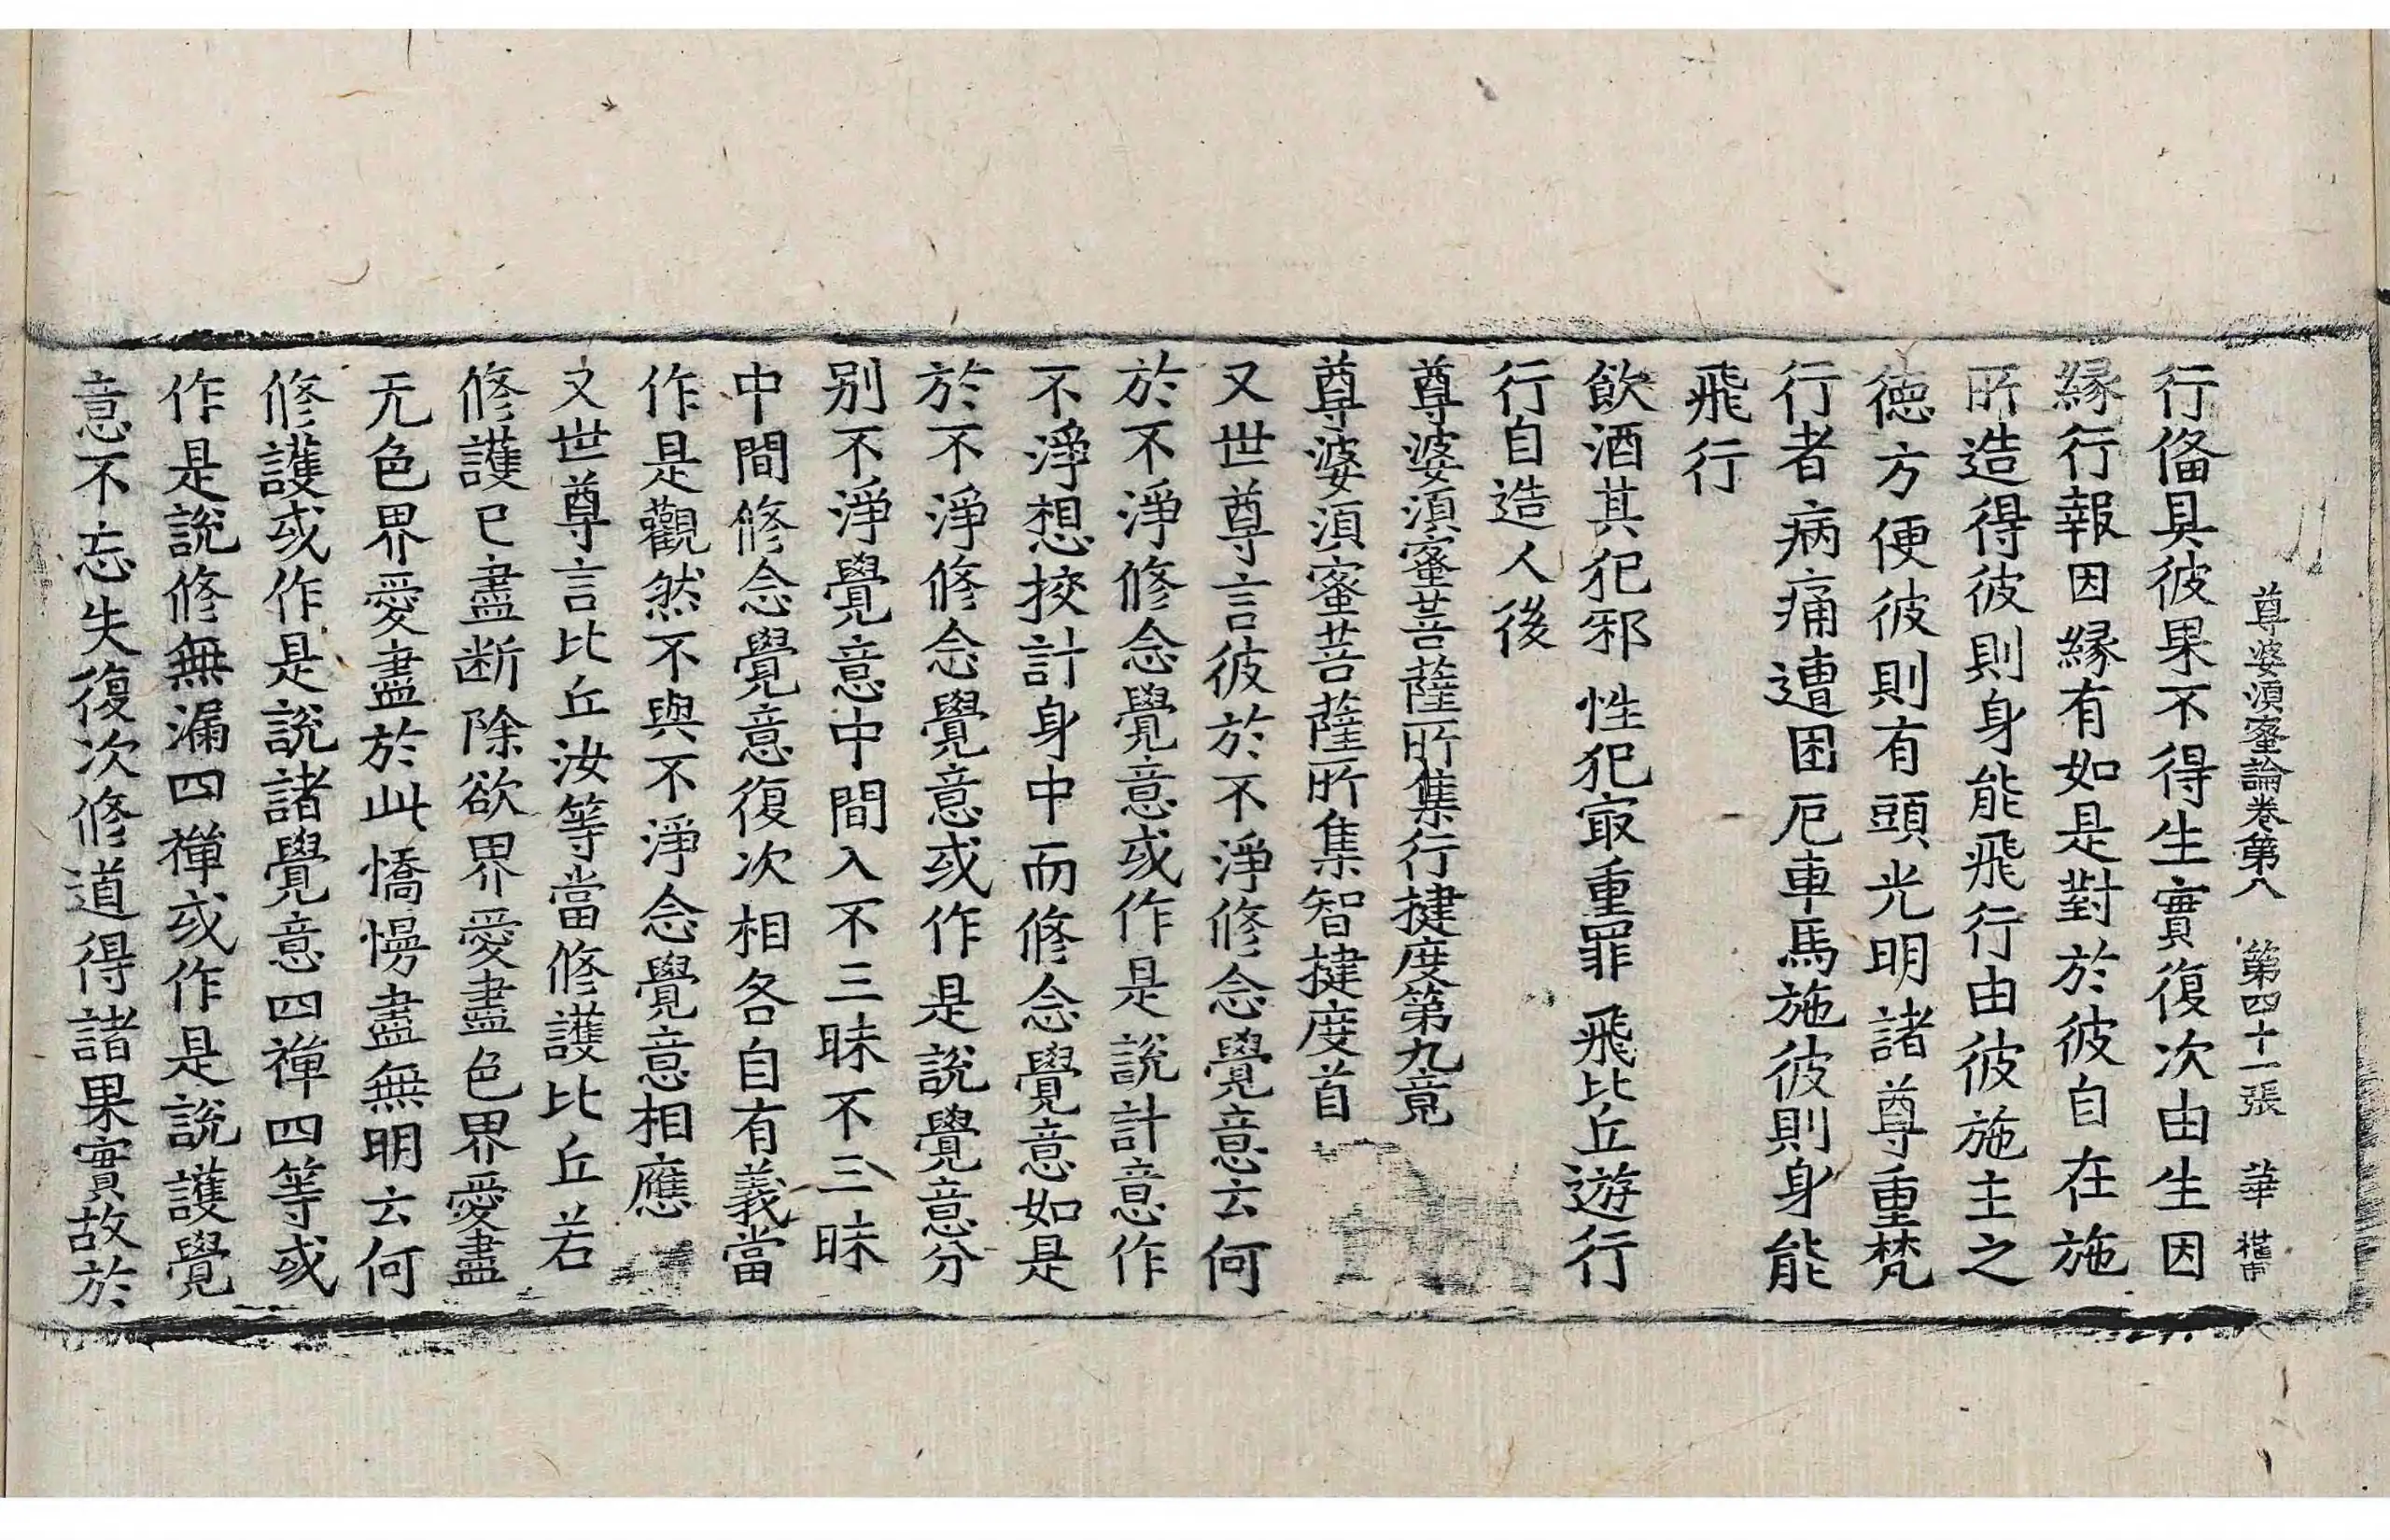 尊婆湏蜜論卷第八 第四十一張 華
行俻具彼果不得生實復次由生因
縁行報因縁有如是對於彼自在施
所造得彼則身能飛行由彼施主之
德方便彼則有頭光明諸尊重梵
行者病痛遭困厄車馬施彼則身能
飛行
飲酒其犯邪 性犯㝡重罪 飛比丘遊行
行自造人後
尊婆湏蜜菩薩所集行揵度第九竟
尊婆湏蜜菩薩所集智揵度首
又世尊言彼於不淨修念覺意云何
於不淨修念覺意或作是說計意作
不淨想挍計身中而修念覺意如是
於不淨修念覺意或作是說覺意分
别不淨覺意中間入不三昧不三昧
中間修念覺意復次相各自有義當
作是觀然不與不淨念覺意相應
又世尊言比丘汝等當修護比丘若
修護已盡断除欲界愛盡色界愛盡
无色界愛盡於此憍慢盡無明云何
修護或作是說諸覺意四禪四等或
作是說修無漏四禪或作是說護覺
意不忘失復次修道得諸果實故於